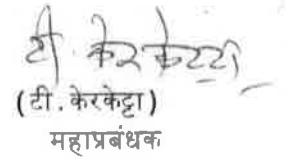 टी. केरकेट्टा
(टी. केरकेट्टा)
महाप्रबंधक